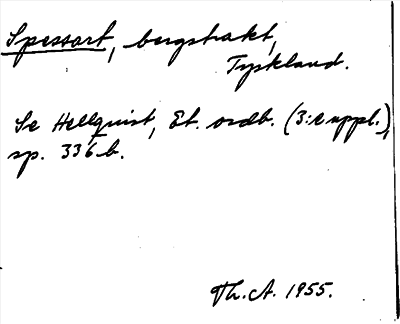 Spessart, bergstrakt,
Tyskland.
Se Hellquist, Et. ordb. (3:e uppl.),
sp. 336 b.
Th. A. 1955.